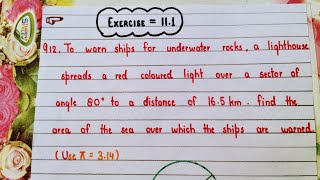 Exercise = 11.1
Q12. To warn ships for underwater rocks, a lighthouse
spreads a red coloured light over a sector of
angle 80° to a distance of 16.5 km. find the
area of the sea over which the ships are warned.
(Use π = 3.14)